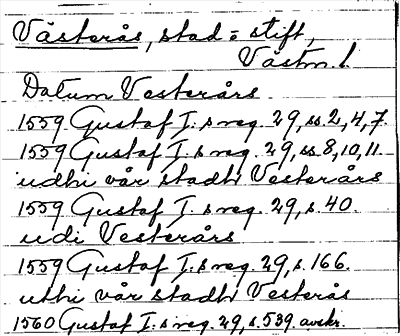 Västerås, stad = stift,
Västm. l.
Datum Vesterårs
1559 Gustaf I:s reg. 29, ss. 2, 4, 7.
1559 Gustaf I:s reg. 29, ss. 8, 10, 11.
udhi vår stadh Vesterårs
1559 Gustaf I:s reg. 29, s. 40.
udi Vesterårs
1559 Gustaf I:s reg. 29, s. 166.
uthi vår stadh Vesterås
1560 Gustaf I:s reg. 29, s. 539, avskr.